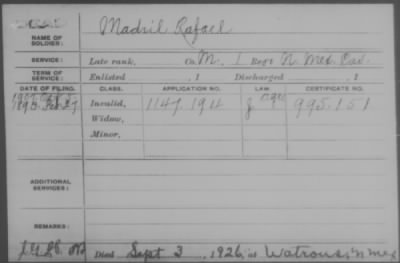 NAME OF SOLDIER: Madril Rafael
SERVICE: Late rank, Co. M, 1 Reg't N. Mex. Cav.
TERM OF SERVICE: Enlisted , 1 Discharged , 1
DATE OF FILING. CLASS. APPLICATION NO. LAW. CERTIFICATE NO.
Invalid, 1147.194 995.151
Widow,
Minor,
ADDITIONAL SERVICES:
REMARKS:
Died Sept 3, 1926, at Watrous, N Mex